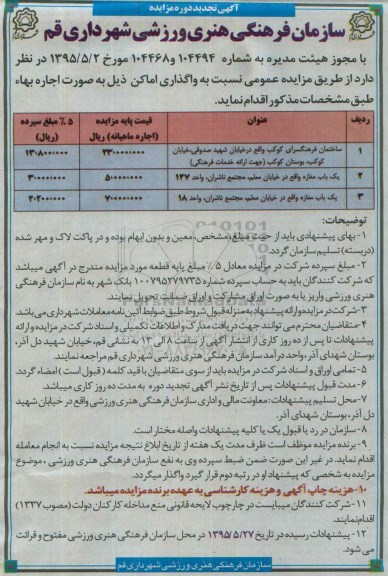 آگهی تجدید دوره مزایده
سازمان فرهنگی هنری ورزشی شهرداری قم
با مجوز هیئت مدیره به شماره ۱۰۴۴۹۴ و ۱۰۴۴۶۸ مورخ ۱۳۹۵/۵/۲ در نظر
دارد از طریق مزایده عمومی نسبت به واگذاری اماکن ذیل به صورت اجاره بهاء
طبق مشخصات مذکور اقدام نماید.
ردیف عنوان قیمت پایه مزایده (اجاره ماهیانه) ریال ۵٪ مبلغ سپرده (ریال)
۱ ساختمان فرهنگسرای کوکب واقع در خیابان شهید صدوقی، خیابان کوکب، بوستان کوکب (جهت ارائه خدمات فرهنگی)
۲ یک باب مغازه واقع در خیابان معلم، مجتمع ناشران، واحد ۱۴۷
۳ یک باب مغازه واقع در خیابان معلم، مجتمع ناشران، واحد ۱۸
توضیحات:
۱- بهای پیشنهادی باید از حیث مبلغ، مشخص، معین و بدون ابهام بوده و در پاکت لاک و مهر شده
(دربسته) تسلیم سازمان گردد.
۲- مبلغ سپرده شرکت در مزایده معادل ۵٪ مبلغ پایه قطعه مورد مزایده مندرج در آگهی میباشد
که شرکت کنندگان باید به حساب سپرده شماره ۱۰۰۷۹۵۲۷۹۷۳۵ بانک شهر به نام سازمان فرهنگی
هنری ورزشی واریز یا به صورت اوراق مشارکت و اوراق ضمانت تحویل نمایند.
۳- شرکت در مزایده و ارائه پیشنهاد به منزله قبول شروط طبق ضوابط آئین نامه معاملات شهرداری می باشد.
۴- متقاضیان محترم می توانند جهت دریافت مدارک و اطلاعات تکمیلی و اسناد شرکت در مزایده و ارائه
پیشنهادات تا پس از ده روز کاری از انتشار آگهی از ساعت ۸ الی ۱۳ به نشانی قم، خیابان شهید دل آذر،
بوستان شهدای آذر، واحد درآمد سازمان فرهنگی هنری ورزشی شهرداری قم مراجعه نمایند.
۵- تمامی اوراق و اسناد شرکت در مزایده باید از سوی متقاضیان با قید کلمه (قبول است) امضاء گردد.
۶- مدت قبول پیشنهادات پس از تاریخ نشر آگهی تجدید دوره به مدت ده روز کاری میباشد.
۷- محل تسلیم پیشنهادات: معاونت مالی و اداری سازمان فرهنگی هنری ورزشی واقع در خیابان شهید
دل آذر، بوستان شهدای آذر.
۸- سازمان در رد یا قبول یک یا کلیه پیشنهادات واصله مختار است.
۹- برنده مزایده موظف است ظرف مدت یک هفته از تاریخ ابلاغ نتیجه مزایده نسبت به انجام معامله
اقدام نماید. در غیر این صورت ضمن ضبط سپرده وی به نفع سازمان فرهنگی هنری ورزشی، موضوع
مزایده به شخصی که پیشنهاد او در رتبه دوم قرار گیرد واگذار میگردد.
۱۰- هزینه چاپ آگهی و هزینه کارشناسی به عهده برنده مزایده میباشد.
۱۱- شرکت کنندگان میبایست در چارچوب لایحه قانونی منع مداخله کارکنان دولت (مصوب ۱۳۳۷)
اقدام نمایند.
۱۲- پیشنهادات رسیده در تاریخ ۱۳۹۵/۵/۲۷ در محل سازمان فرهنگی هنری ورزشی مفتوح و قرائت
می شود.
سازمان فرهنگی هنری ورزشی شهرداری قم